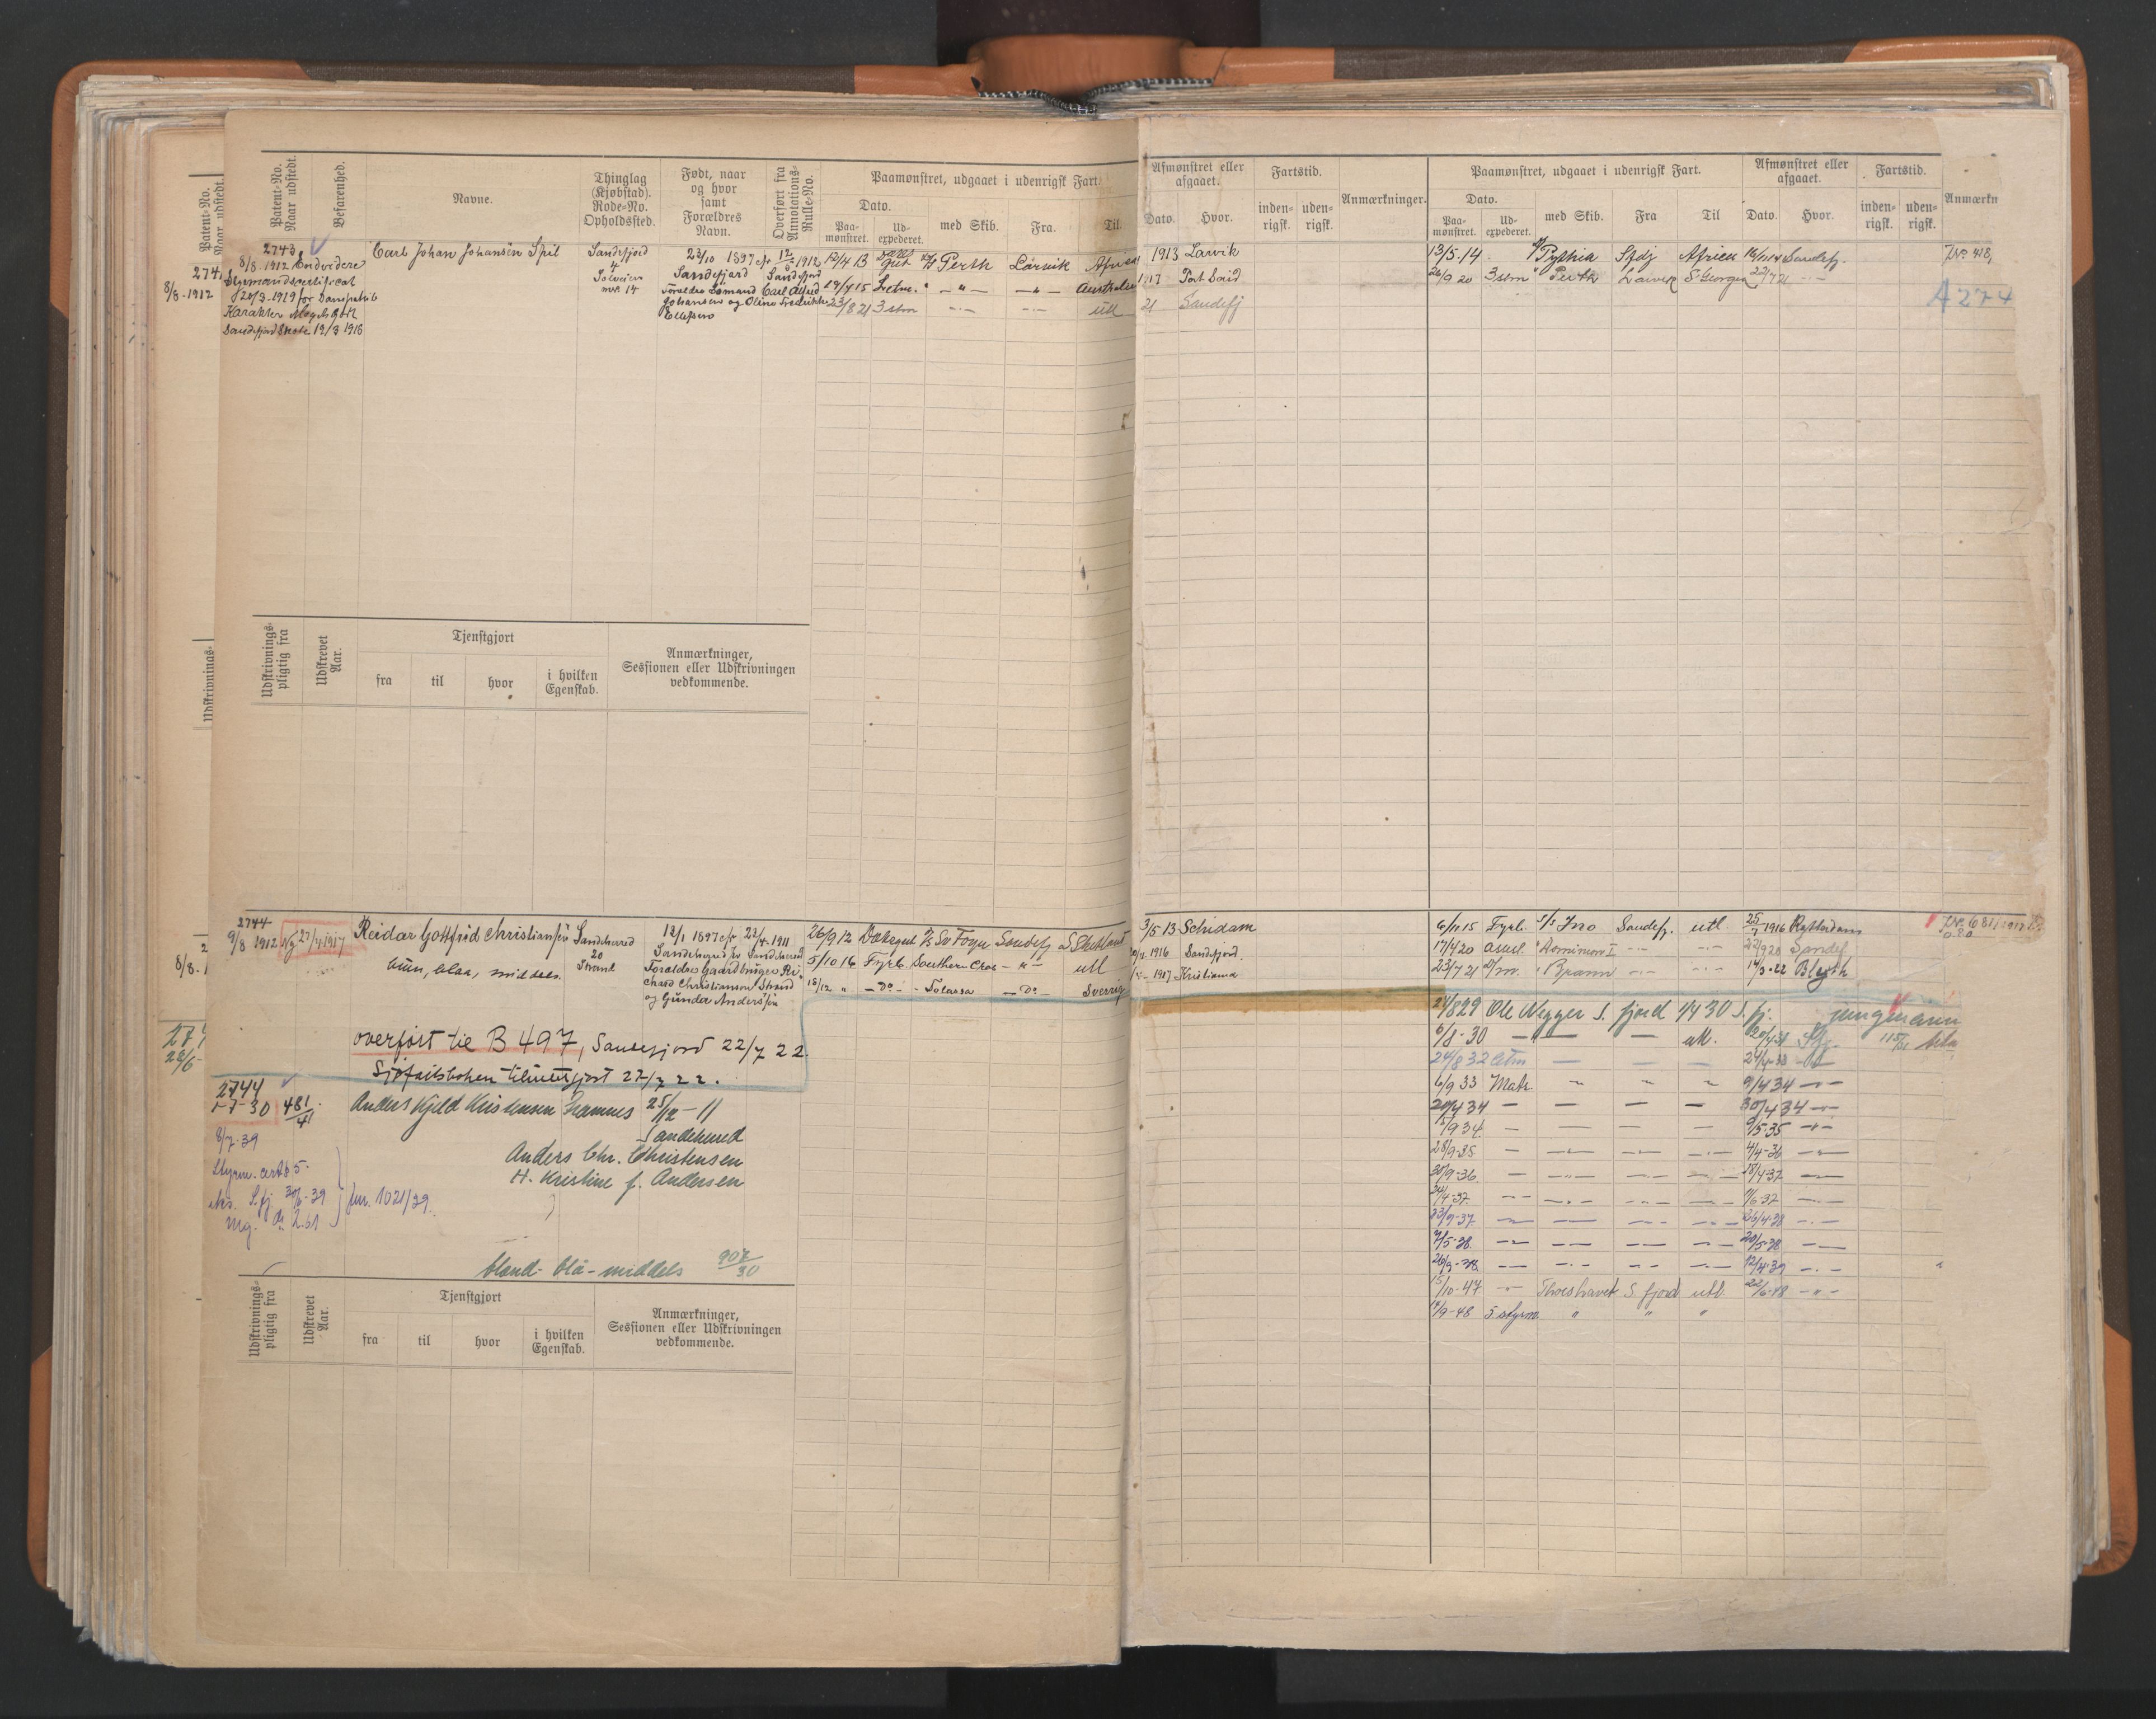 Patent-No. Naar udstedt.
Befarenhed.
Navne.
Thinglag (Kjøbstad). Rode-No. Opholdssted.
Født, naar og hvor samt Forældres Navn.
Overført fra Annotations-Rulle-No.
Paamønstret, udgaaet i udenrigsk Fart.
Dato.
Paa-mønstret.
Ud-expederet.
med Skib.
Fra.
Til.
Afmønstret eller afgaaet.
Dato.
Hvor.
Fartstid.
inden-rigsk.
uden-rigsk.
Anmærkninger.
Paamønstret, udgaaet i udenrigsk Fart.
Dato.
Paa-mønstret.
Ud-expederet.
med Skib.
Fra
Til
Afmønstret eller afgaaet.
Dato.
Hvor.
Fartstid.
inden-rigsk.
uden-rigsk.
Anmærkn
2743
8/8 1912
Styrmandscertifikat
20/3-1919 for Dampskib
Karakter Meget Godt
Sandefjord Skole 12/3 1918
Carl Johan Johansen Spil
Sandefjord
4
No 14
23/10 1897
12/5 1912
Sandefjord Sandefjord
Forældre Sømand Carl Alfred
Johansen og Oline Fredrikke
Ellefsen
12/4 13 Perth Larvik
19/4 15 Letm. " - " - - " - Australien
23/8 21 3 stm - " - - " - utl
1913 Larvik
17 Port Said
21 Sandefj
13/5-14 Pythia Sfdj Africa 14 Sandefj.
26/9 20 3 stm " Perth Larvik S. Georgia 21 - " -
No 418,
A 274
Udskrivnings-pligtig fra
Udskrevet Aar.
Tjenstgjort
fra
til
hvor
i hvilken Egenskab.
Anmærkninger, Sessionen eller Udskrivningen vedkommende.
2744
9/8 1912
27/4 1917
Reidar Gottfrid Christiansen
blaa, middels.
Sandeherred
20
Strand
12/1 1897 22/4-1911
Sandeherred Sandeherred
Forældre Gaardbruger Ri-
chard Christiansen Strand
og Gunda Anderssen
26/9 12 Dæksgut Sv Foyn Sandefj S Shetland
5/10 16 Fyrb. Southern Cross - " - utl
15/12 " - Do - - Solassa - Do - Sverrig
3/5 13 Schidam
1916 Sandefjord.
1917 Kristiania
6/11 15 Fyrb. S/S Ino Sandefj. utl 25/7 1916 Rotterdam
17/4 20 " Dominion I - " - - " - 20 Sandef.
23/7 21 " Bramn - " - - " - 14/3-22 Blyth
overført til B 497, Sandefjord 22/7 22.
Sjøfartsboken tilintetgjort 27/7 22.
2744
1-7-30 481/41
8/7-39
Styrm. cert
S.fj 39
Mg. 2.51
Jnr. 1021/39.
Anders Kjeld Kristensen Framnes 25/12-11
Sandeherred
Anders Chr. Christensen
H. Kristine f. Andersen
blond- blå- middels 907/30
24/8 29 Ole Wegger S. fjord 1/4 30 S. fj. jungmann
6/8-30 - " - - utl. 20/4-31 Sfj.
24/8 32 Letm - - - 24/4-33 - " -
6/9 33 Matr. " " " 9/4 34 - " -
20/4 34 - - - - 30/4 34 - " -
12/9 34. - - - - 9/5-35 - " -
28/9-35 - - " - - " - - " - 4/4-36 - " -
30/9-36 - - " - - " - - " - 18/4-37 - " -
24/4-37 - " - - " - - " - - " - 9/6-37 - " -
23/9-37 - " - - " - - " - - " - 26/4-38 - " -
7/5-38 - " - - " - - " - - " - 20/5-38 - " -
26/9-38 - " - - " - - " - - " - 12/4-39 - " -
15/10-47 - " - Thorshavet S. fjord utl. 22/6-48 - " -
14/9-48 5 styrm. " " "
Udskrivnings-pligtig fra
Udskrevet Aar.
Tjenstgjort
fra
til
hvor
i hvilken Egenskab.
Anmærkninger, Sessionen eller Udskrivningen vedkommende.